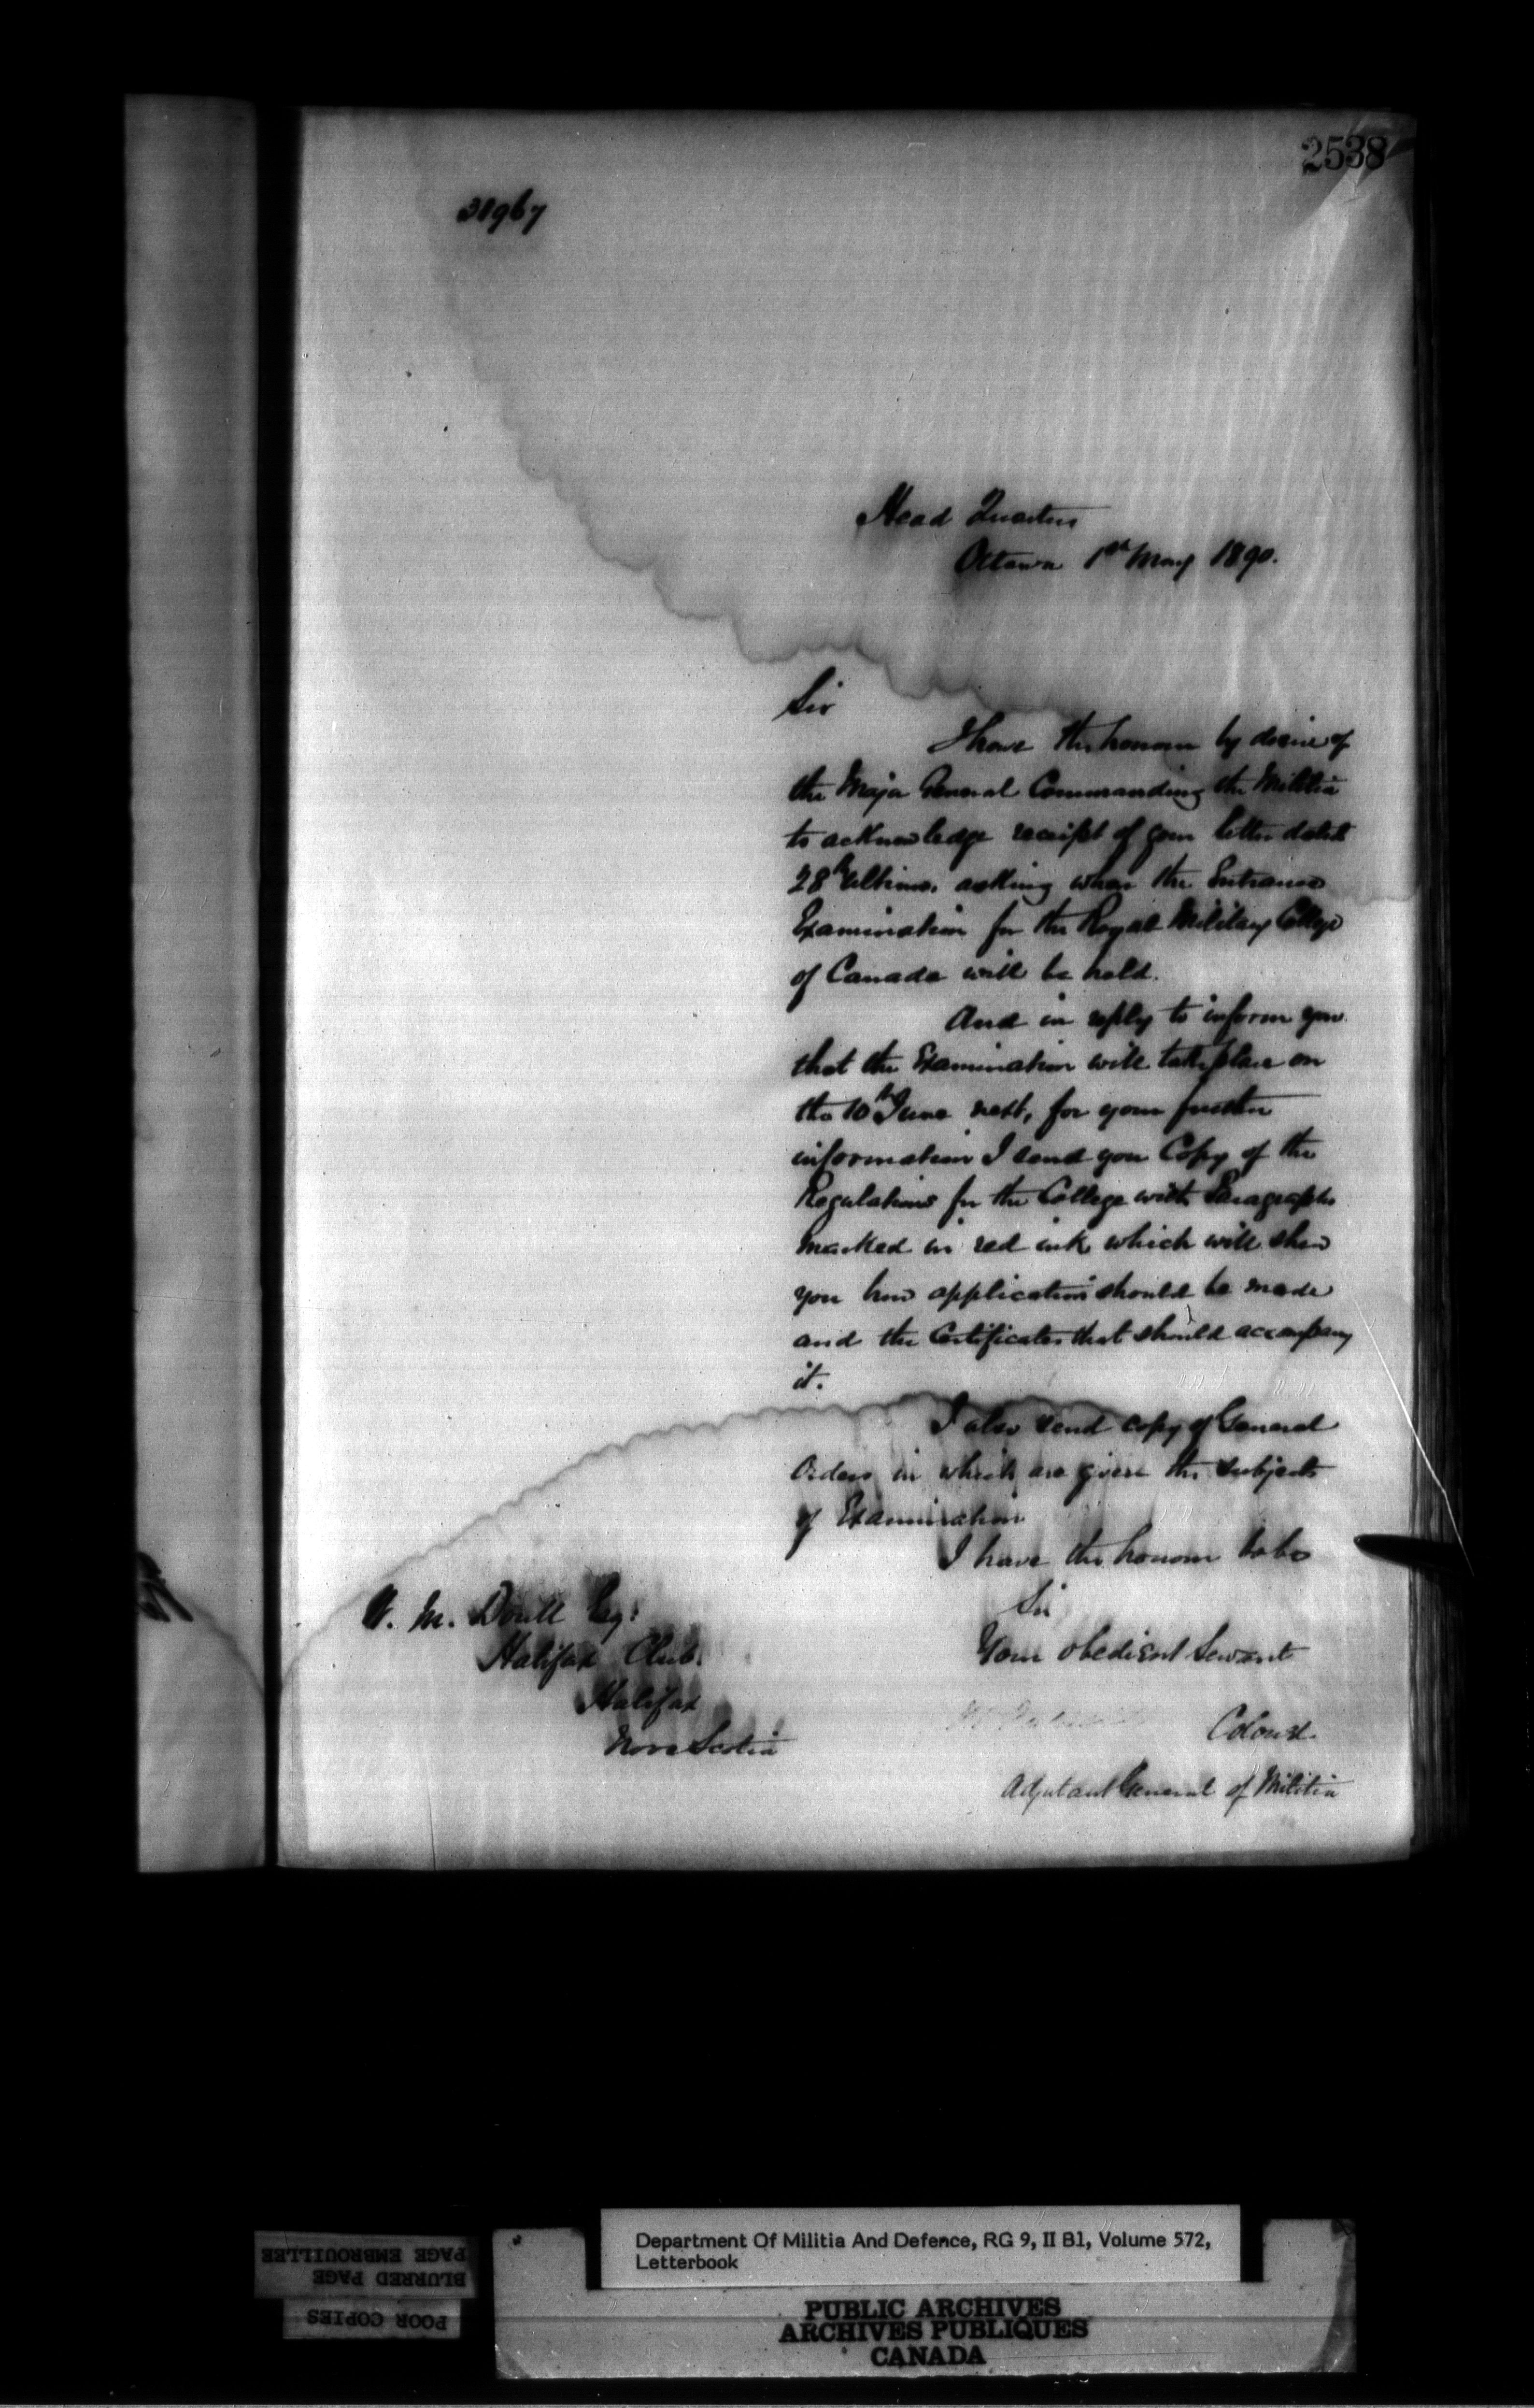 2538
31967
Head Quarters
Ottawa 1st May 1890.
Sir
I have the honour by desire of
the Major General Commanding the Militia
to acknowledge receipt of your letter dated
28th Ultimo, asking when the Entrance
Examination for the Royal Military College
of Canada will be held.
And in reply to inform you
that the Examination will take place on
the 10th June next, for your further
information I send you Copy of the
Regulations for the College with Paragraphs
marked in red ink which will show
you how application should be made
and the Certificates that should accompany
it.
I also send copy of General
Orders in which are given the subjects
of Examination
I have the honour to be
Sir
Your obedient Servant
Colonel
Adjutant General of Militia
W. M. Doull Esq:
Halifax Club.
Halifax
Nova Scotia
Department Of Militia And Defence, RG 9, II B1, Volume 572,
Letterbook
PUBLIC ARCHIVES
ARCHIVES PUBLIQUES
CANADA
POOR COPIES
BLURRED PAGE
PAGE EMBROUILLEE